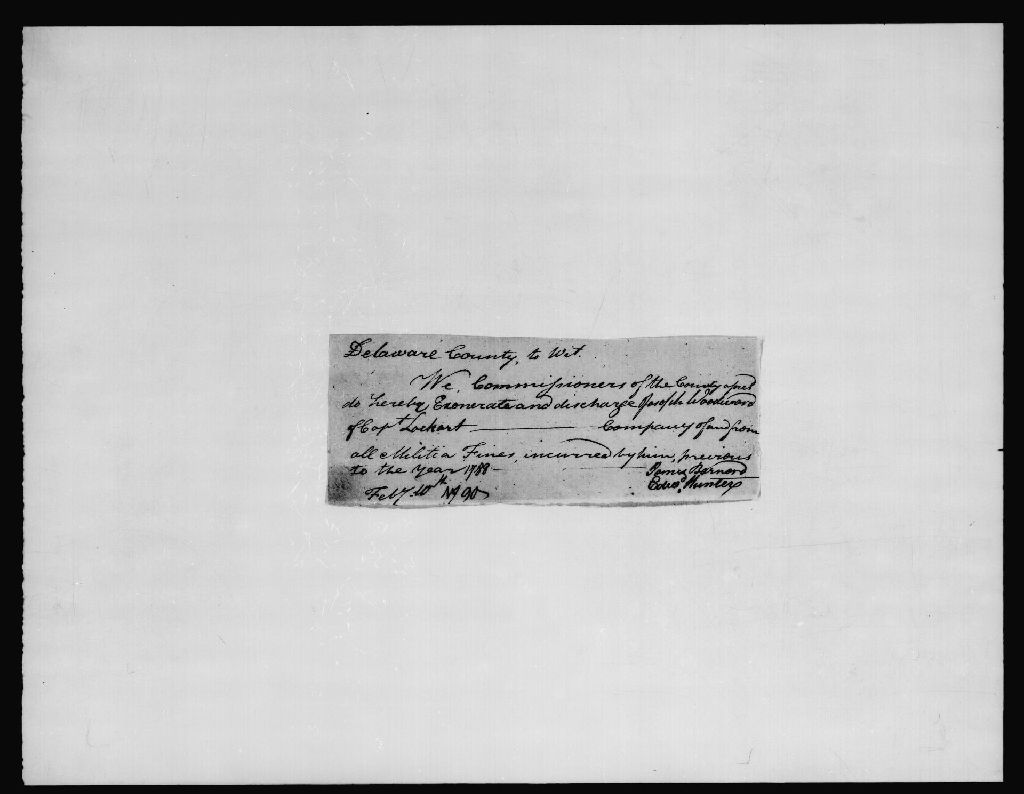 Delaware County, to Wit.
We, Commissioners of the County afores<sup>d</sup>
do hereby Exonerate and discharge Joseph Woodward
of Cap<sup>t</sup> Lockart ———— Company of and from
all Militia Fines, incurred by him, previous
to the Year 1788 —
James Barnard
Edw<sup>d</sup>. Hunter
Feby. 10<sup>th</sup> 1790